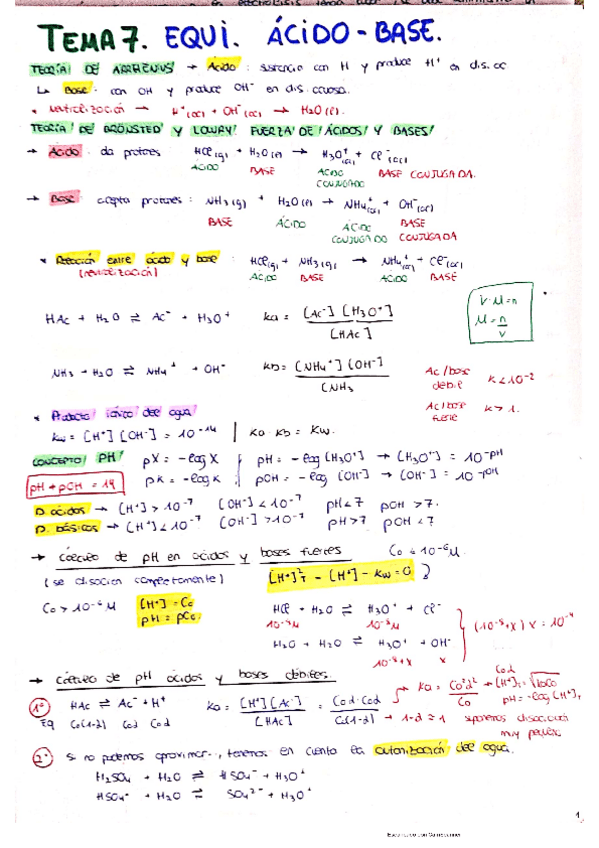 TEMA 7. EQUI. ÁCIDO-BASE.
TEORÍA DE ARRHENIUS → Ácido: sustancia con H y produce H⁺ en dis. ac
↳ Base: con OH y produce OH⁻ en dis. acuosa.
* Neutralización → H⁺(ac) + OH⁻(ac) → H₂O(l).
TEORÍA DE BRÖNSTED Y LOWRY FUERZA DE ÁCIDOS Y BASES
→ Ácido: da protones HCl(g) + H₂O(l) → H₃O⁺(ac) + Cl⁻(ac)
ÁCIDO BASE ÁCIDO CONJUGADO BASE CONJUGADA.
→ Base: acepta protones: NH₃(g) + H₂O(l) → NH₄⁺(ac) + OH⁻(ac)
BASE ÁCIDO ÁCIDO CONJUGADO BASE CONJUGADA
* Reacción entre ácido y base: HCl(g) + NH₃(g) → NH₄⁺(ac) + Cl⁻(ac)
(neutralización) ÁCIDO BASE ÁCIDO BASE
V·M=n
M = n/V
HAc + H₂O ⇌ Ac⁻ + H₃O⁺ Ka = [Ac⁻][H₃O⁺]/[HAc]
NH₃ + H₂O ⇌ NH₄⁺ + OH⁻ Kb = [NH₄⁺][OH⁻]/[NH₃
Ac/base débil K<10⁻²
Ac/base fuerte K>1.
* Producto iónico del agua
Kw = [H⁺][OH⁻] = 10⁻¹⁴ | Ka·Kb = Kw.
CONCEPTO PH pX = -log X pH = -log[H₃O⁺] → [H₃O⁺] = 10⁻ᵖᴴ
pH + pOH = 14 pK = -log K pOH = -log [OH⁻] → [OH⁻] = 10⁻ᵖᴼᴴ
D. ácidos → [H⁺] > 10⁻⁷ [OH⁻] < 10⁻⁷ pH<7 pOH >7.
D. básicos → [H⁺] < 10⁻⁷ [OH⁻] > 10⁻⁷ pH>7 pOH <7
→ Cálculo de pH en ácidos y bases fuertes Co ≈ 10⁻⁶M.
(se disocian completamente) [H⁺]²T - [H⁺] - Kw = 0
Co > 10⁻⁶M [H⁺] = Co
pH = pCo.
HCl + H₂O ⇌ H₃O⁺ + Cl⁻
10⁻⁸M 10⁻⁸M
(10⁻⁸+x) x = 10⁻¹⁴
H₂O + H₂O ⇌ H₃O⁺ + OH⁻
10⁻⁸+x x
→ Cálculo de pH ácidos y bases débiles.
1º HAc ⇌ Ac⁻ + H⁺ Ka = [H⁺][Ac⁻]/[HAc] = Coα·Coα/Co(1-α) → 1-α ≅ 1 suponemos disociación muy pequeña
Eq Co(1-α) Coα Coα
Ka = Co²α²/Co → [H⁺] = √KaCo
Coα
pH = -log[H⁺]
2º Si no podemos aproximar..., tenemos en cuenta la autoionización del agua.
H₂SO₄ + H₂O ⇌ HSO₄⁻ + H₃O⁺
HSO₄⁻ + H₂O ⇌ SO₄²⁻ + H₃O⁺
1
Escaneado con CamScanner